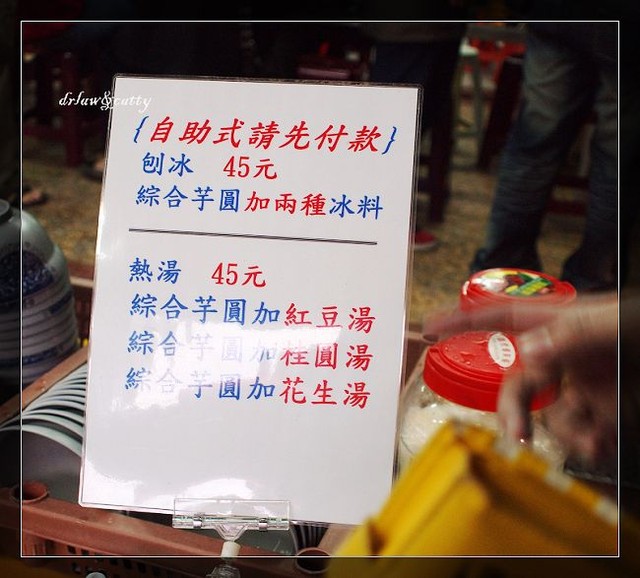 drlaw&catty
{自助式請先付款}
刨冰 45元
綜合芋圓加兩種冰料
熱湯 45元
綜合芋圓加紅豆湯
綜合芋圓加桂圓湯
綜合芋圓加花生湯